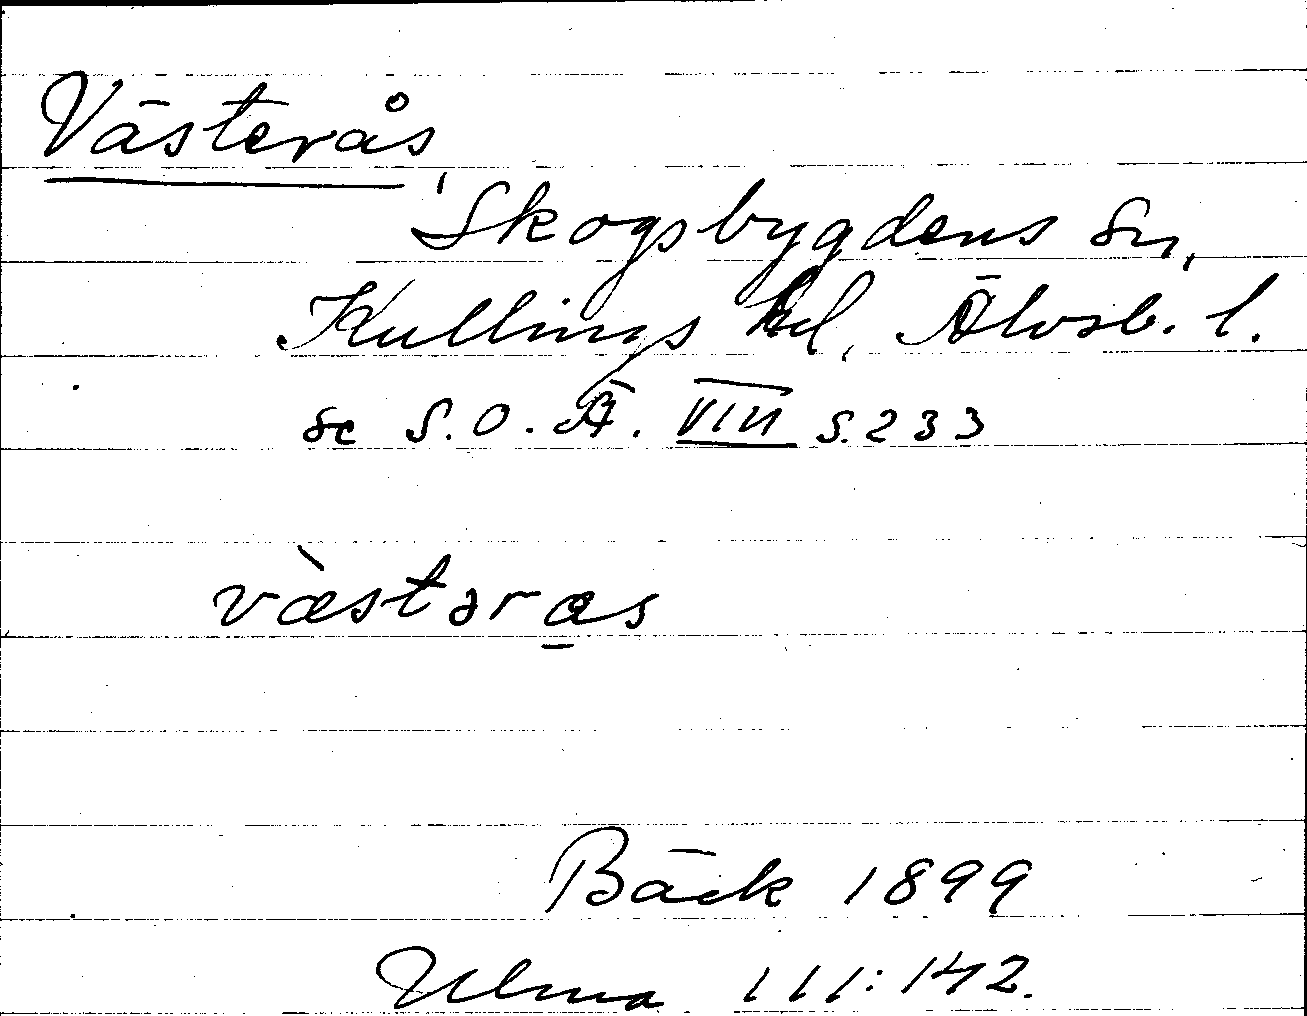 Västerås,
Skogsbygdens sn,
Kullings hd, Älvsb. l.
se S.O.Ä. VIII s. 233
vàstəras
Bäck 1899
Ulma 111:142.